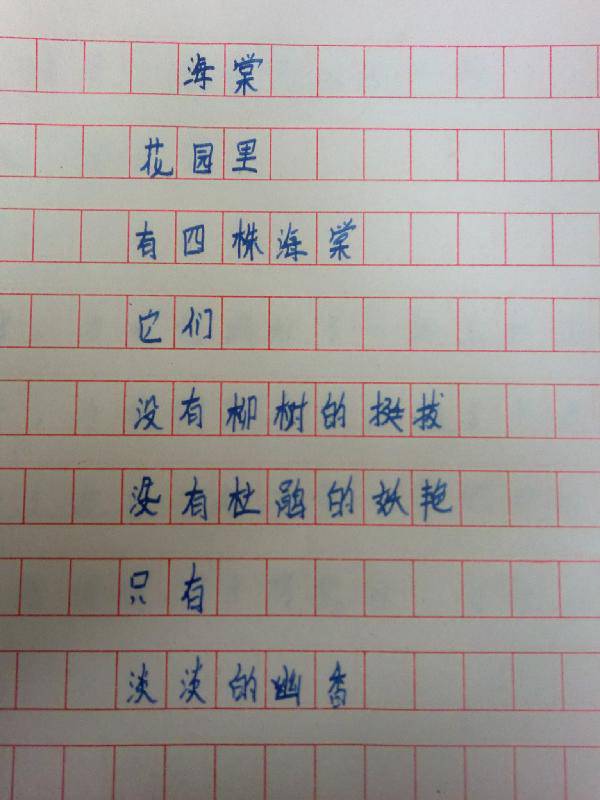 海棠
花园里
有四株海棠
它们
没有柳树的挺拔
没有杜鹃的妖艳
只有
淡淡的幽香